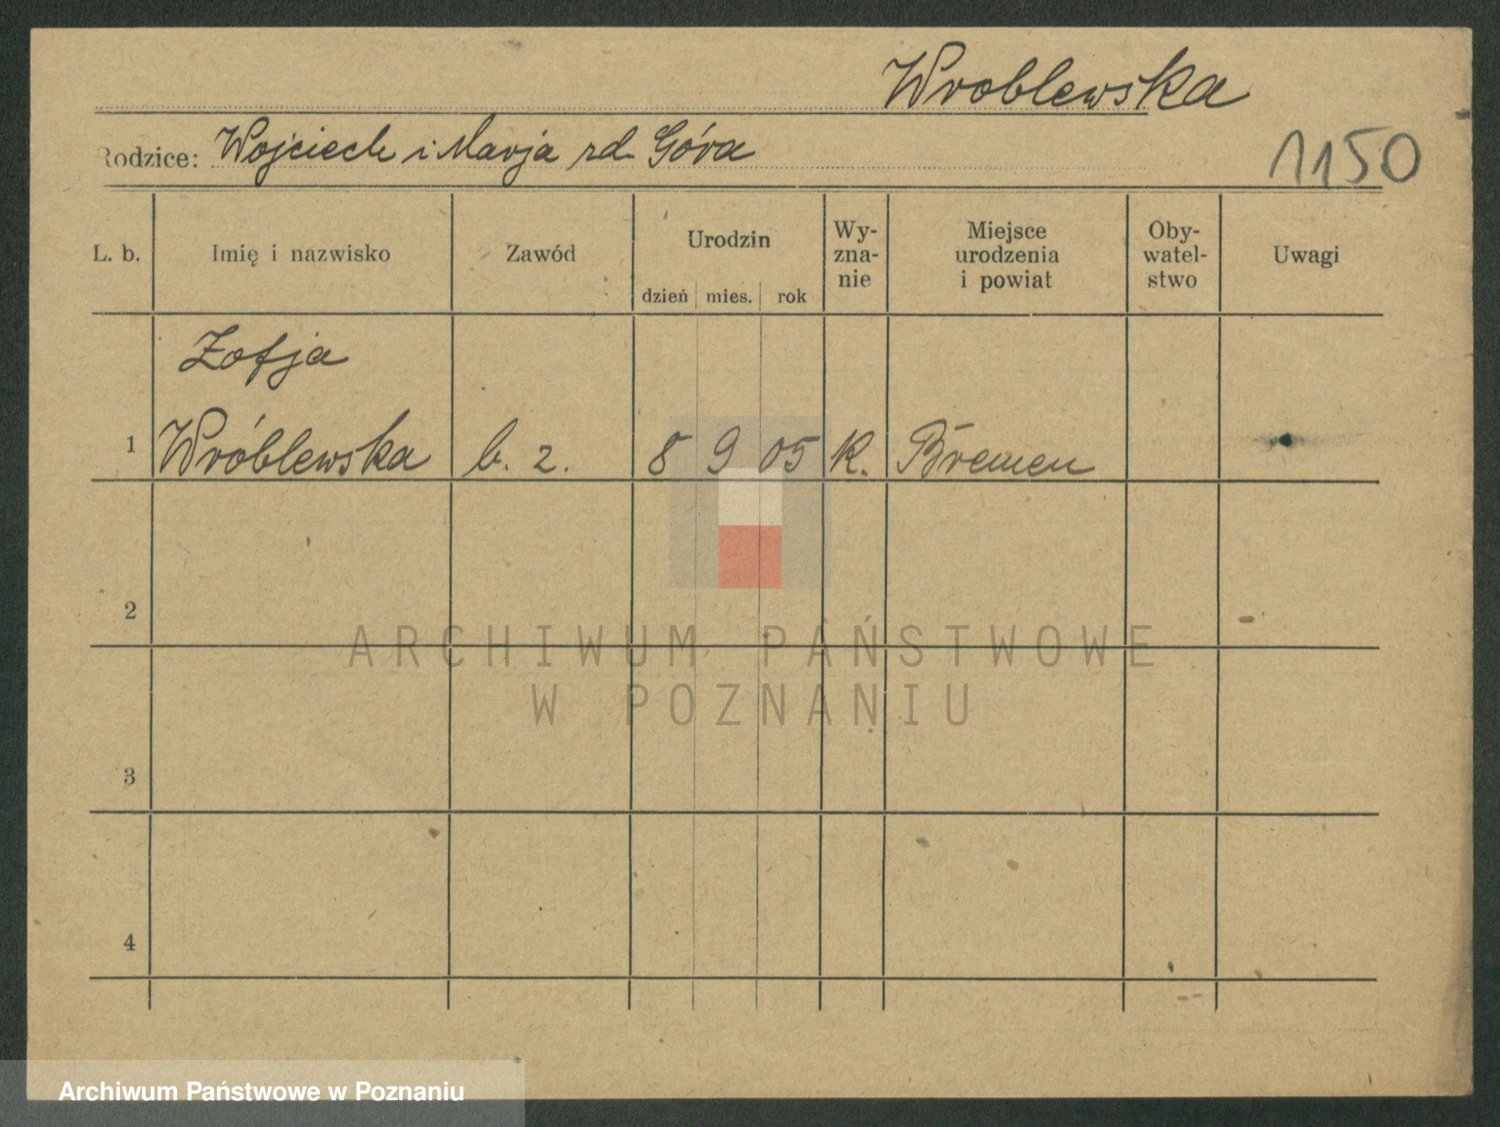 Wroblewska
Rodzice: Wojciech i Marja rd. Góra
1150
L. b. Imię i nazwisko Zawód Urodzin dzień mies. rok Wy-
zna-
nie Miejsce
urodzenia
i powiat Oby-
watel-
stwo Uwagi
Zofja
1 Wróblewska b. z. 8 9 05 K. Bremen
2
3
4
ARCHIWUM PAŃSTWOWE
W POZNANIU
Archiwum Państwowe w Poznaniu